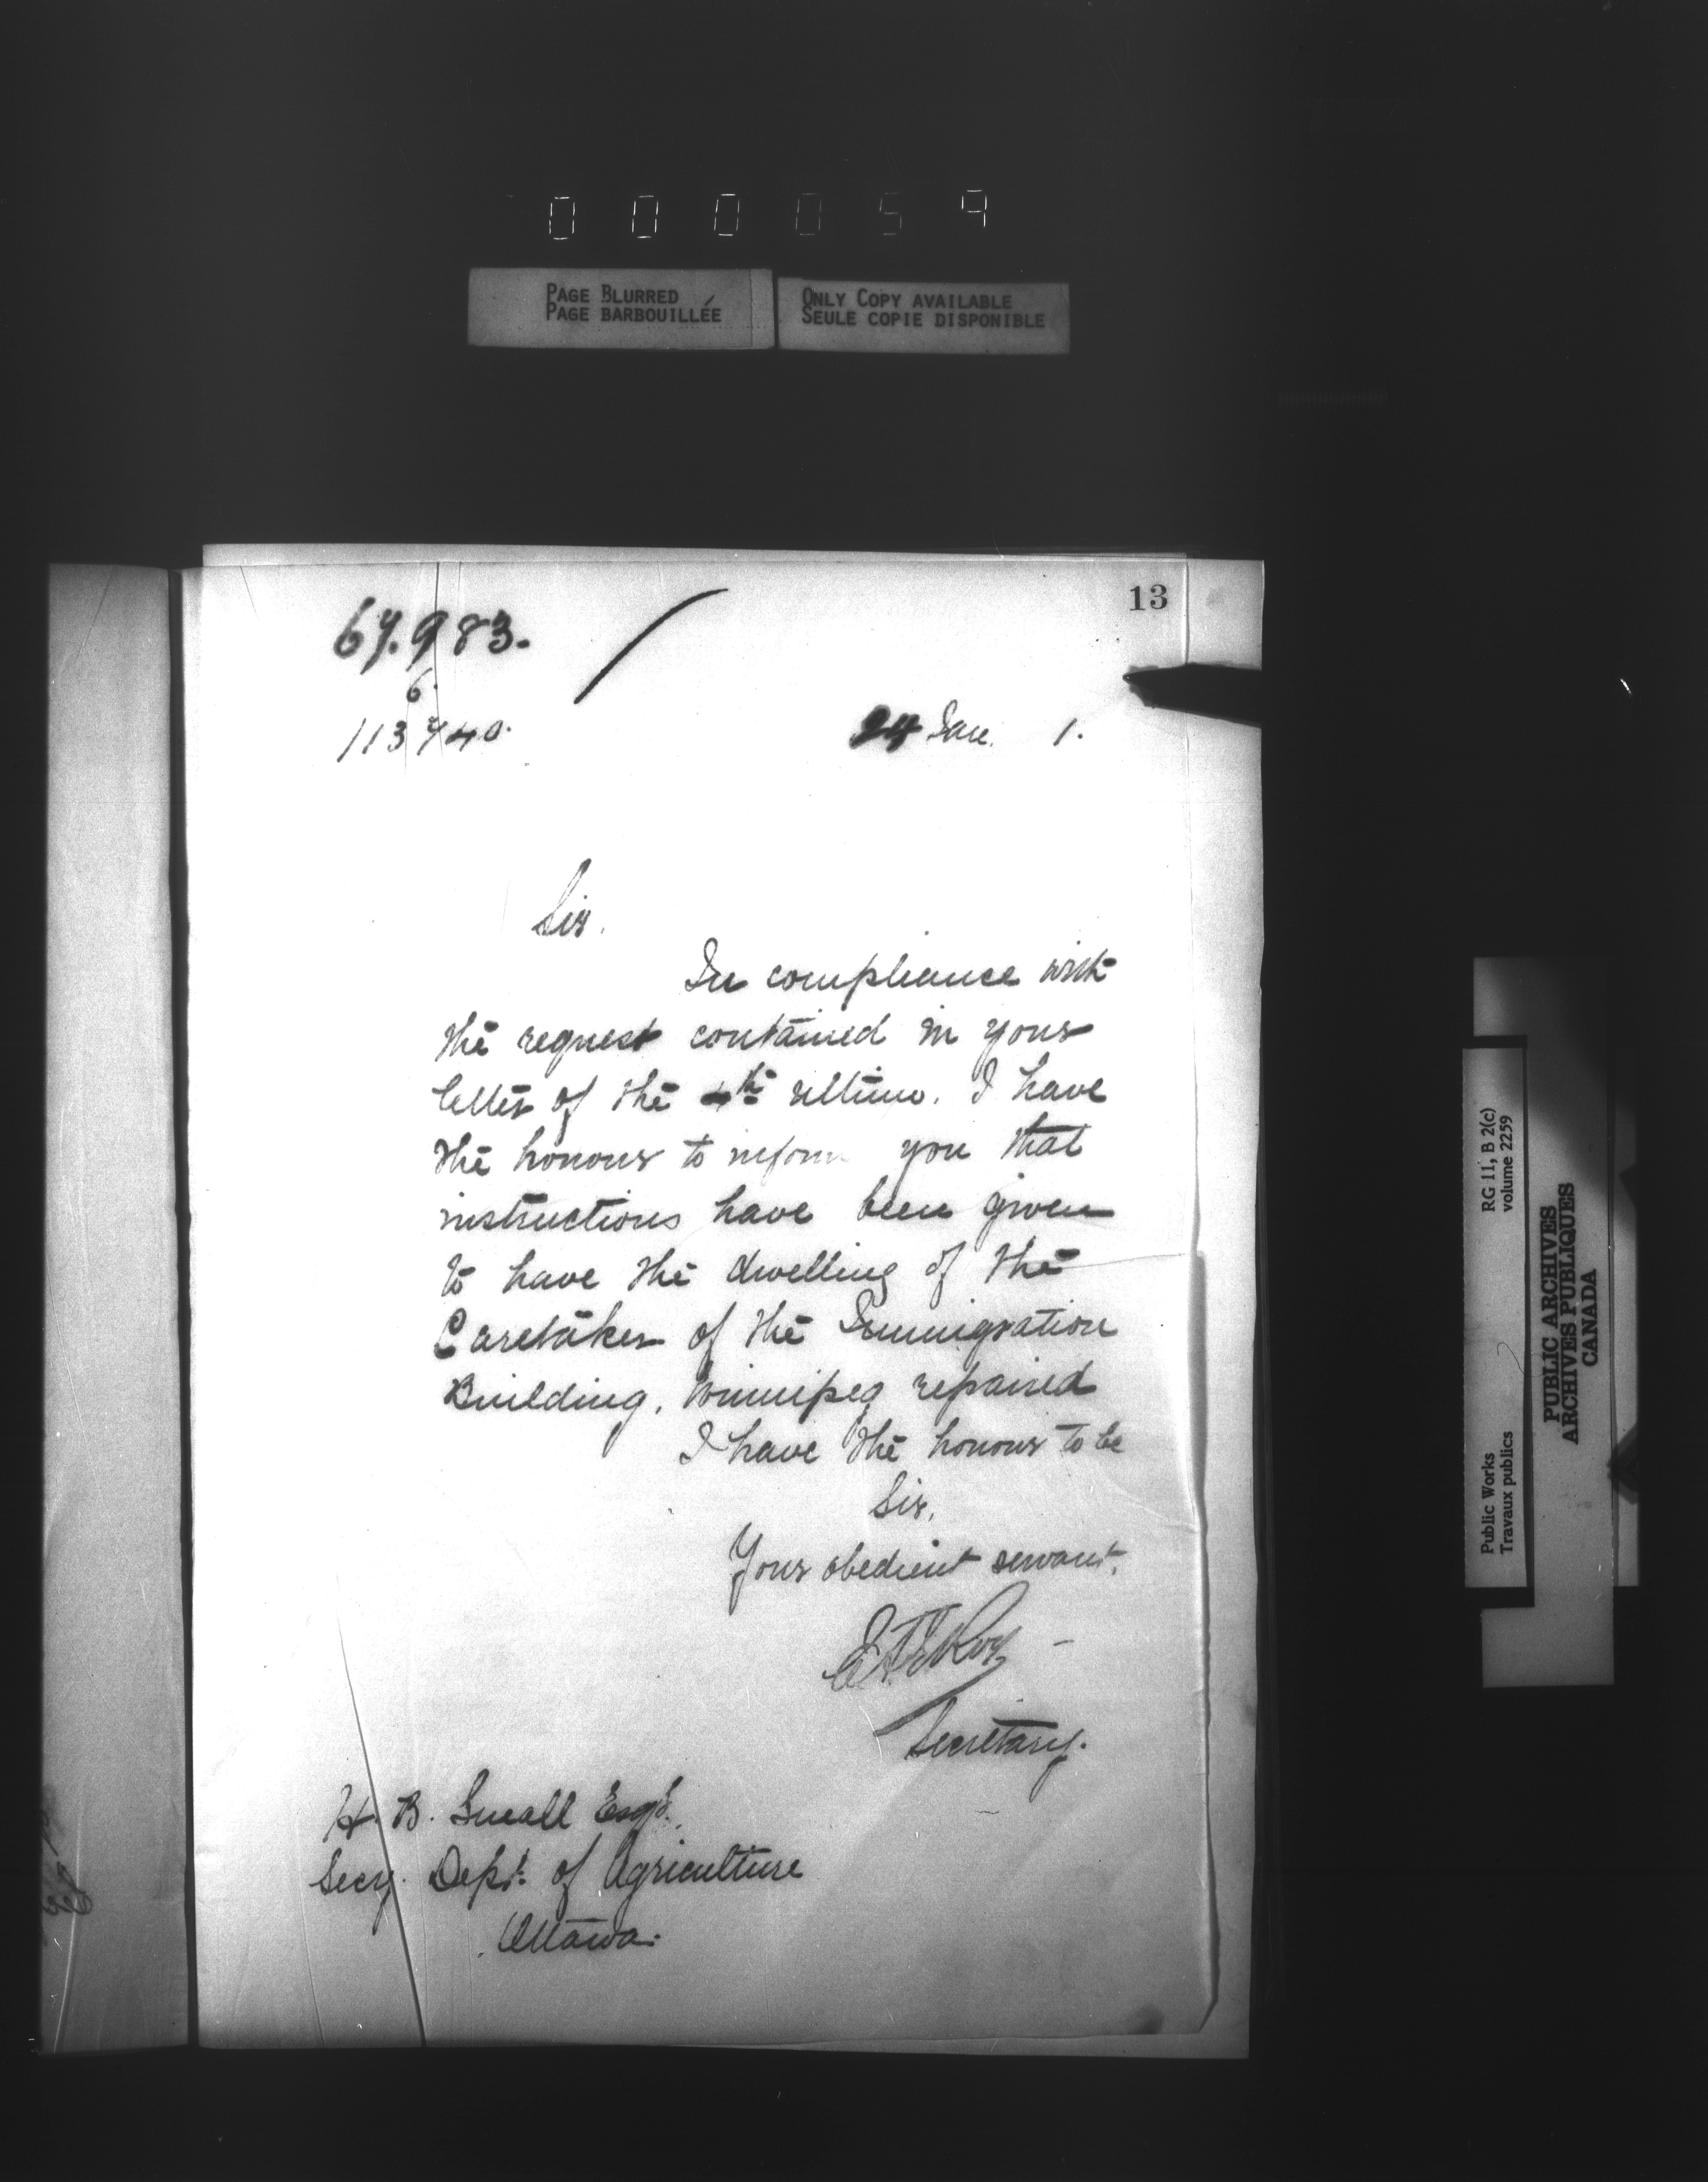 000059
PAGE BLURRED
PAGE BARBOUILLÉE
ONLY COPY AVAILABLE
SEULE COPIE DISPONIBLE
13
67.983.
6.
113740.
24 Jan. 1.
Sir.
In compliance with
the request contained in your
letter of the 4th ultimo. I have
the honour to inform you that
instructions have been given
to have the dwelling of the
Caretaker of the Immigration
Building, Winnipeg repaired
I have the honour to be
Sir,
Your obedient servant,
Secretary.
H. B. Small Esqr.
Secy. Dept. of Agriculture
Ottawa.
Public Works
Travaux publics
RG 11, B 2(c)
volume 2259
PUBLIC ARCHIVES
ARCHIVES PUBLIQUES
CANADA